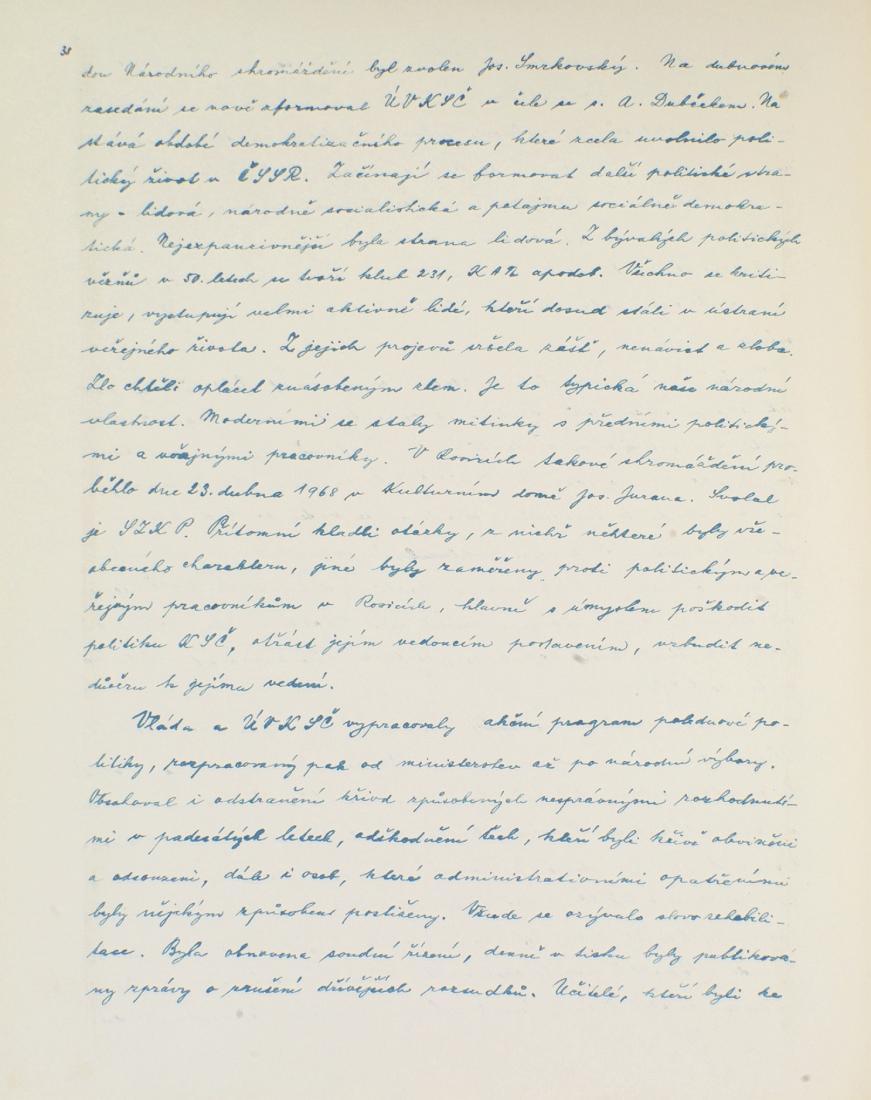 38
dou Národního shromáždění byl zvolen Jos. Smrkovský. Na dubnovém
zasedání se nově zformoval ÚV KSČ v čele se s. A. Dubčekem. Na
stává období demokratizačního procesu, které zcela uvolnilo poli-
tický život v ČSSR. Začínají se formovat další politické stra-
ny - lidová, národně socialistická a potajmu sociálně demokra-
tická. Nejexpanzivnější byla strana lidová. Z bývalých politických
vězňů v 50. letech se tvoří klub 231, KAN apodob. Všechno se kriti-
zuje, vystupují velmi aktivně lidé, kteří dosud stáli v ústraní
veřejného života. Z jejich projevů sršela zášť, nenávist a zloba.
Zlo chtěli oplácet znásobeným zlem. Je to typická naše národní
vlastnost. Moderními se staly mítinky s předními politický-
mi a vojnými pracovníky. V Rosicích takové shromáždění pro-
běhlo dne 23. dubna 1968 v Kulturním domě Jos. Jurana. Svolal
je SZKP. Přítomní kladli otázky, z nichž některé byly vše-
obecného charakteru, jiné byly zaměřeny proti politickým a ve-
řejným pracovníkům v Rosicích, hlavně s úmyslem poškodit
politiku KSČ, otřást jejím vedoucím postavením, vzbudit ne-
důvěru k jejímu vedení.
Vláda a ÚV KSČ vypracovaly akční program polednové po-
litiky, rozpracovaný pak od ministerstev až po národní výbory.
Obsahoval i odstranění křivd způsobených nesprávnými rozhodnutí-
mi v padesátých letech, odškodnění těch, kteří byli křivě obviněni
a odsouzeni, dále i osob, které administrativními opatřeními
byly nějakým způsobem postiženy. Všude se ozývalo slovo rehabili-
tace. Byla obnovena soudní řízení, denně v tisku byly publiková-
ny zprávy o zrušení dřívějších rozsudků. Učitelé, kteří byli ke